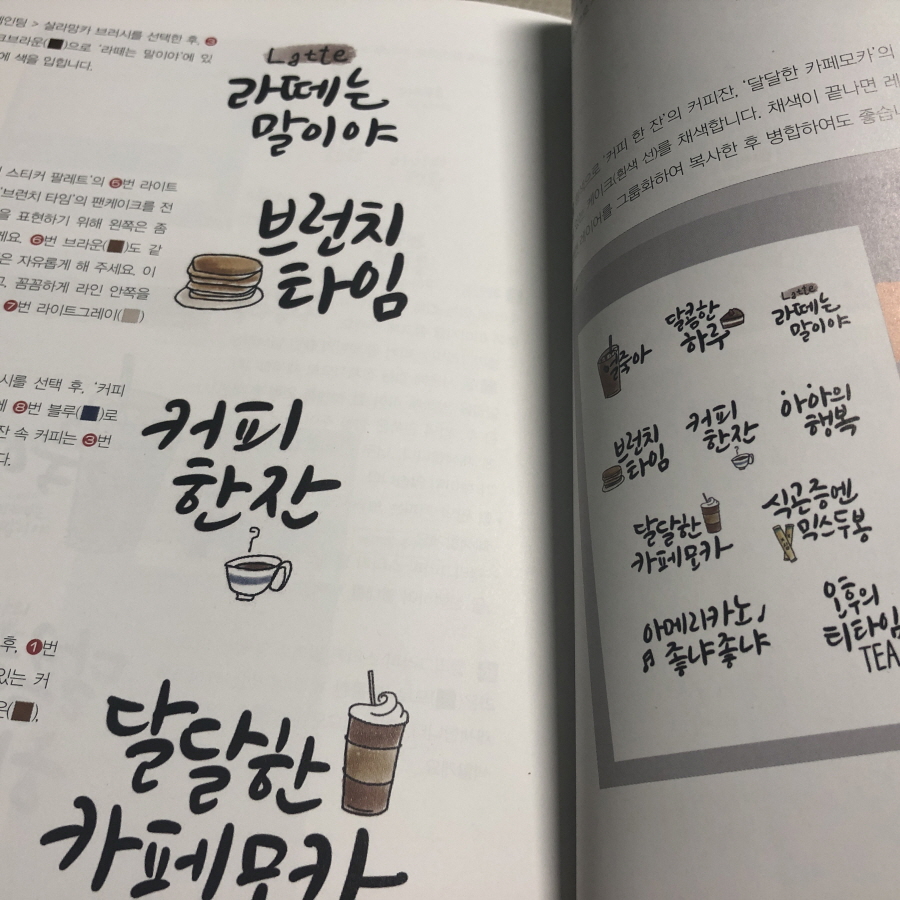 페인팅 > 실라망카 브러시를 선택한 후, 3
크브라운( )으로 '라떼는 말이야'에 있
에 색을 입합니다.
Latte
라떼는
말이야
스티커 팔레트'의 6번 라이트
'브런치 타임'의 팬케이크를 전
을 표현하기 위해 왼쪽은 좀
세요. 6번 브라운( )도 같
은 자유롭게 해 주세요. 이
고, 꼼꼼하게 라인 안쪽을
7번 라이트그레이( )
브런치
타임
시를 선택 후, '커피
에 8번 블루( )로
잔 속 커피는 3번
다.
커피
한잔
후, 1번
있는 커
은( ),
달달한
카페모카
'커피 한 잔'의 커피잔, '달달한 카페모카'의
케이크(흰색 선)를 채색합니다. 채색이 끝나면 레
이어를 그룹화하여 복사한 후 병합하여도 좋습니
얼죽아
달콤한
하루
Latte
라떼는
말이야
브런치
타임
커피
한잔
아아의
행복
달달한
카페모카
식곤증엔
믹스두봉
아메리카노
좋냐좋냐
오후의
티타임
TEA